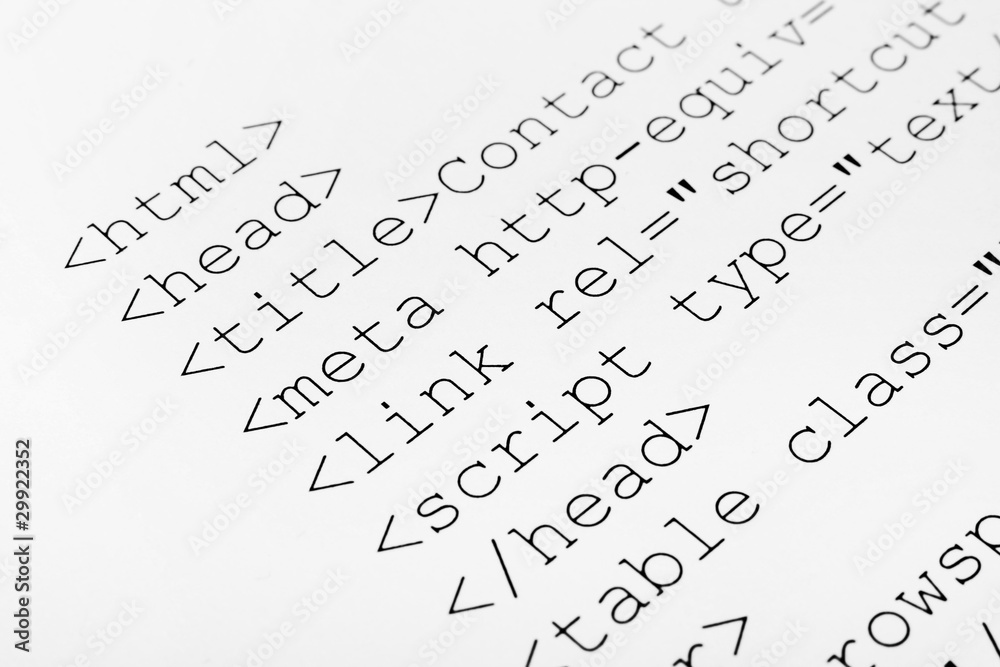 <html>
<head>
<title>Contact
<meta http-equiv=
<link rel="shortcut
<script type="text/
</head>
<table class="
rowsp
Adobe Stock | #29922352